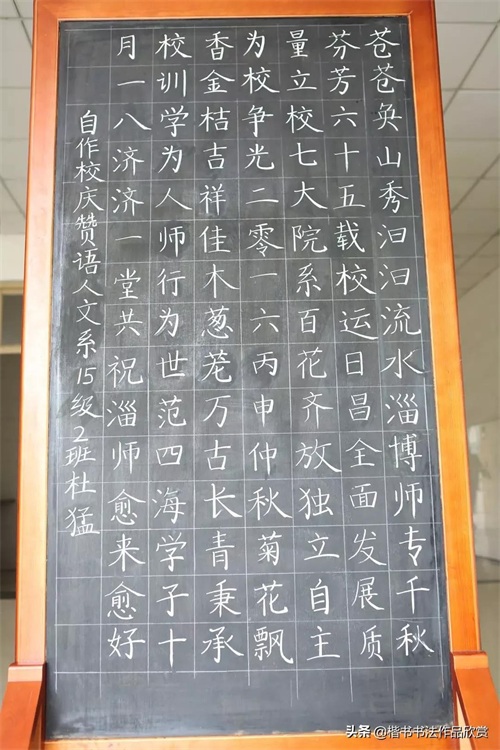 苍苍奂山秀汩汩流水淄博师专千秋
芬芳六十五载校运日昌全面发展质
量立校七大院系百花齐放独立自主
为校争光二零一六丙申仲秋菊花飘
香金桔吉祥佳木葱茏万古长青秉承
校训学为人师行为世范四海学子十
月一八济济一堂共祝淄师愈来愈好
自作校庆赞语人文系15级2班杜猛
头条@楷书书法作品欣赏